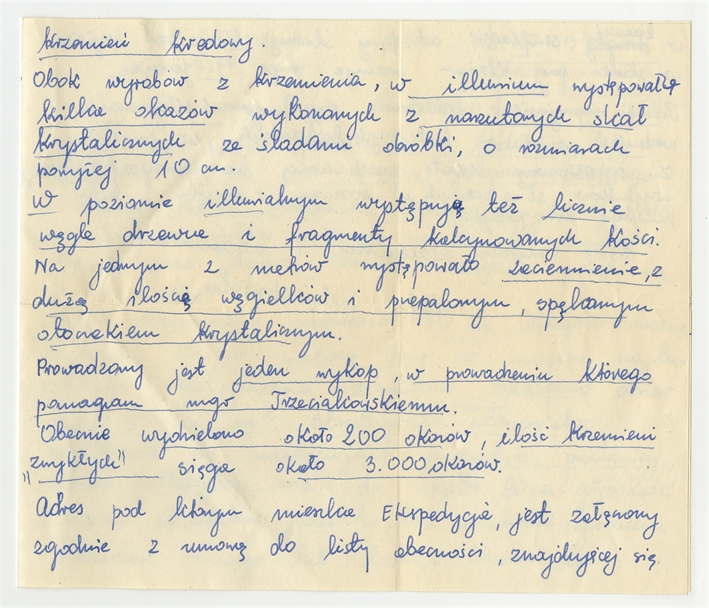 krzemień kredowy.
Obok wyrobów z krzemienia, w illuvium występowało
kilka okazów wykonanych z narzutowych skał
krystalicznych ze śladami obróbki, o rozmiarach
powyżej 10 cm.
W poziomie illuwialnym występują też licznie
węgle drzewne i fragmenty kalcynowanych kości.
Na jednym z metrów występowało zaciemnienie, z
dużą ilością węgielków i przepalonym, spękanym
otoczakiem krystalicznym.
Prowadzony jest jeden wykop, w prowadzeniu którego
pomagam mgr Trzeciakowskiemu.
Obecnie wydzielono około 200 okazów, ilość krzemieni
"zwykłych" sięga około 3.000 okazów.
Adres pod którym mieszka Ekspedycja, jest załączony
zgodnie z umową do listy obecności, znajdującej się